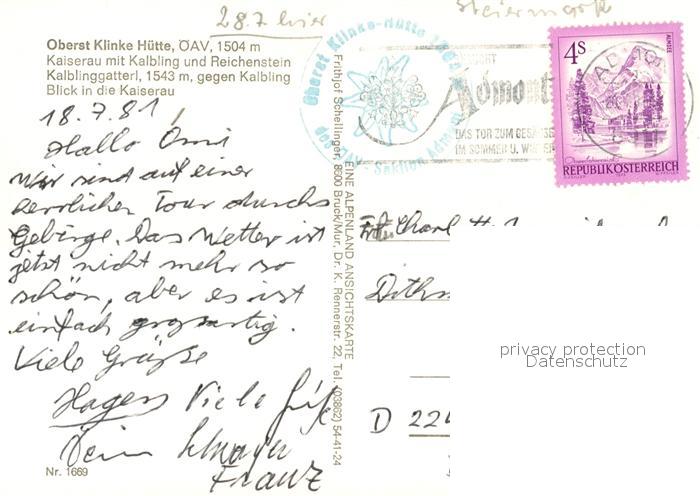 28.7 hier
Steiermark
Oberst Klinke Hütte, ÖAV, 1504 m
Kaiserau mit Kalbling und Reichenstein
Kalblinggatterl, 1543 m, gegen Kalbling
Blick in die Kaiserau
18.7.81
Hallo Omi
Wir sind auf einer
herrlichen Tour durchs
Gebirge. Das Wetter ist
jetzt nicht mehr so
schön, aber es ist
einfach grossartig.
Viele Grüße
Hagen Viele Grüße
Dein
Franz
Nr. 1669
Frithjof Schellinger, 8600 Bruck/Mur, Dr. K. Rennerstr. 22, Tel. (03862) 54-41-24
EINE ALPENLAND ANSICHTSKARTE
Oberst Klinke-Hütte
des ÖAV - Sektion Admont
Admont
DAS TOR ZUM GESÄUSE
IM SOMMER U. WINTER
4S
REPUBLIK ÖSTERREICH
D 22
privacy protection
Datenschutz